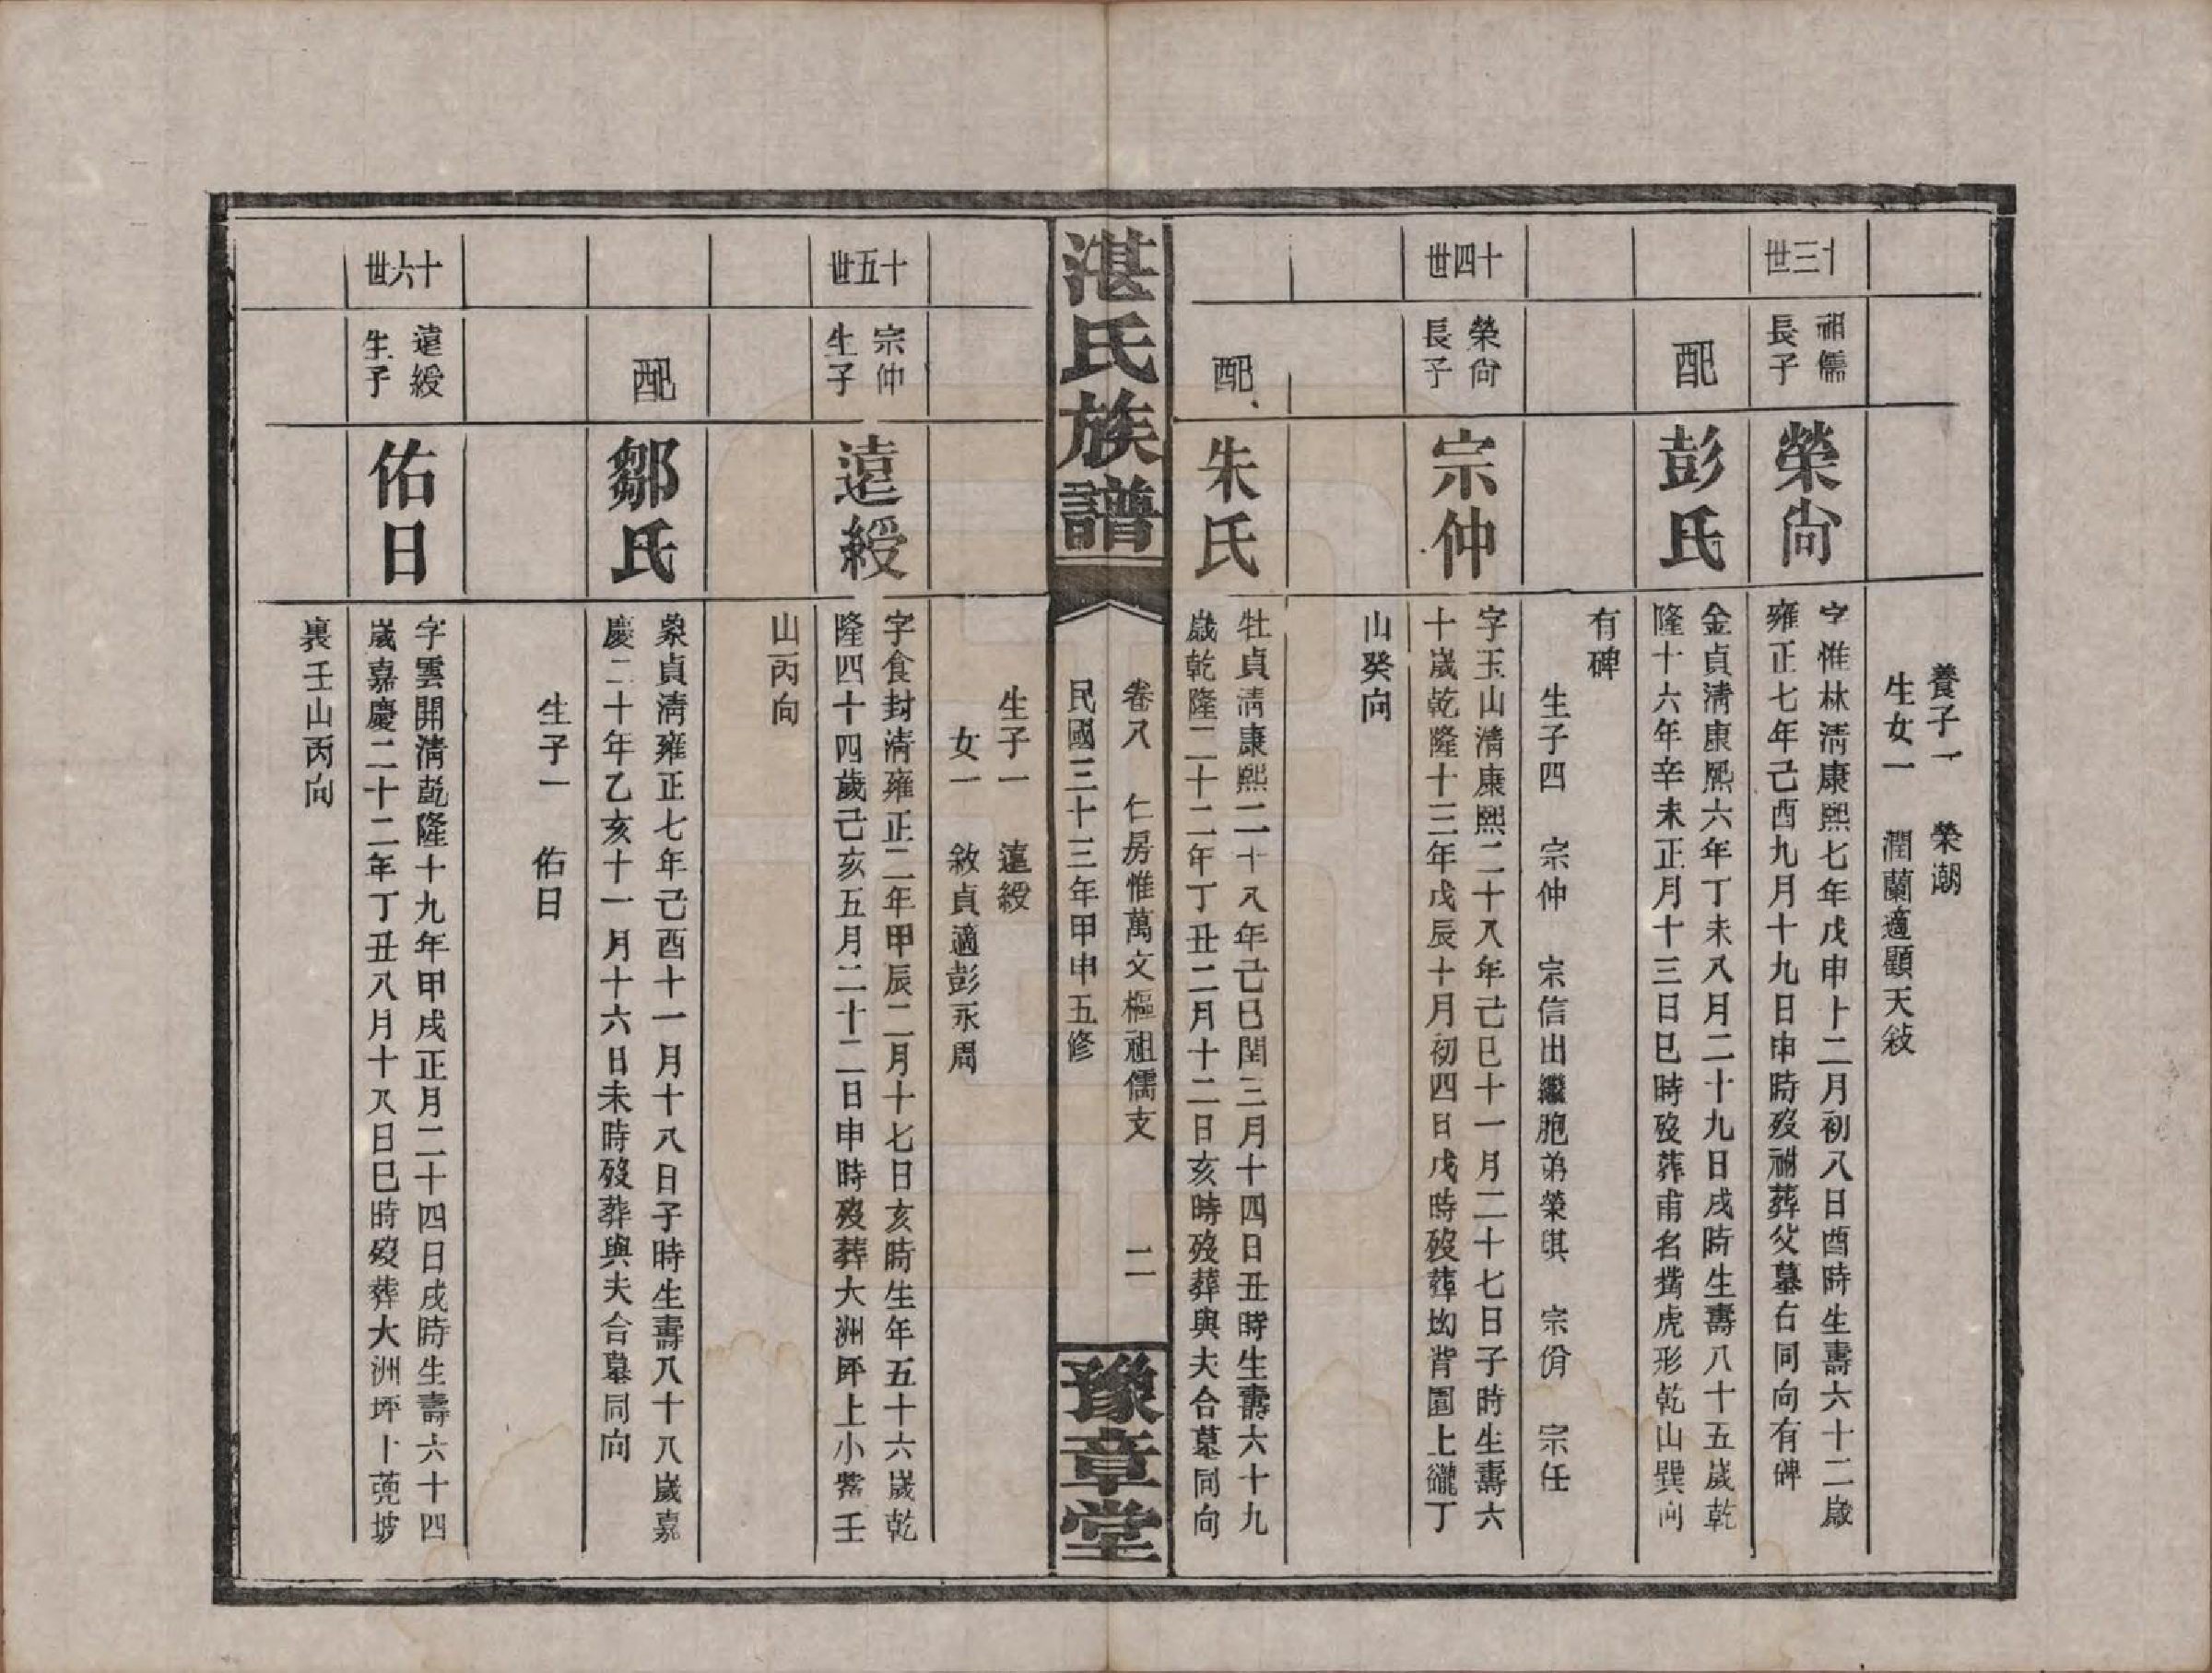 養子一　榮潮
生女一　潤蘭適顧天敍
十三世
祖儒
長子
榮尙
字惟林淸康熙七年戊申十二月初八日酉時生壽六十二歲
雍正七年己酉九月十九日申時歿祔葬父墓右同向有碑
配
彭氏
金貞淸康熙六年丁未八月二十九日戌時生壽八十五歲乾
隆十六年辛未正月十三日巳時歿葬甫名嘴虎形乾山巽向
有碑
生子四　宗仲　宗信出繼胞弟榮琪　宗佾　宗任
十四世
榮尙
長子
宗仲
字玉山淸康熙二十八年己巳十一月二十七日子時生壽六
十歲乾隆十三年戊辰十月初四日戌時歿葬坳背園上巃丁
山癸向
配
朱氏
牡貞淸康熙二十八年己巳閏三月十四日丑時生壽六十九
歲乾隆二十二年丁丑二月十二日亥時歿葬與夫合墓同向
湛氏族譜
卷八　仁房惟萬文樞祖儒支　二
民國三十三年甲申五修
豫章堂
生子一　遠綬
女一　敘貞適彭永周
十五世
宗仲
生子
遠綬
字食封淸雍正二年甲辰二月十七日亥時生年五十六歲乾
隆四十四歲己亥五月二十二日申時歿葬大洲坪上小嘴壬
山丙向
配
鄒氏
彖貞淸雍正七年己酉十一月十八日子時生壽八十八歲嘉
慶二十年乙亥十一月十六日未時歿葬與夫合墓同向
生子一　佑日
十六世
遠綬
生子
佑日
字雲開淸乾隆十九年甲戌正月二十四日戌時生壽六十四
歲嘉慶二十二年丁丑八月十八日巳時歿葬大洲坪上蔸坡
裏壬山丙向